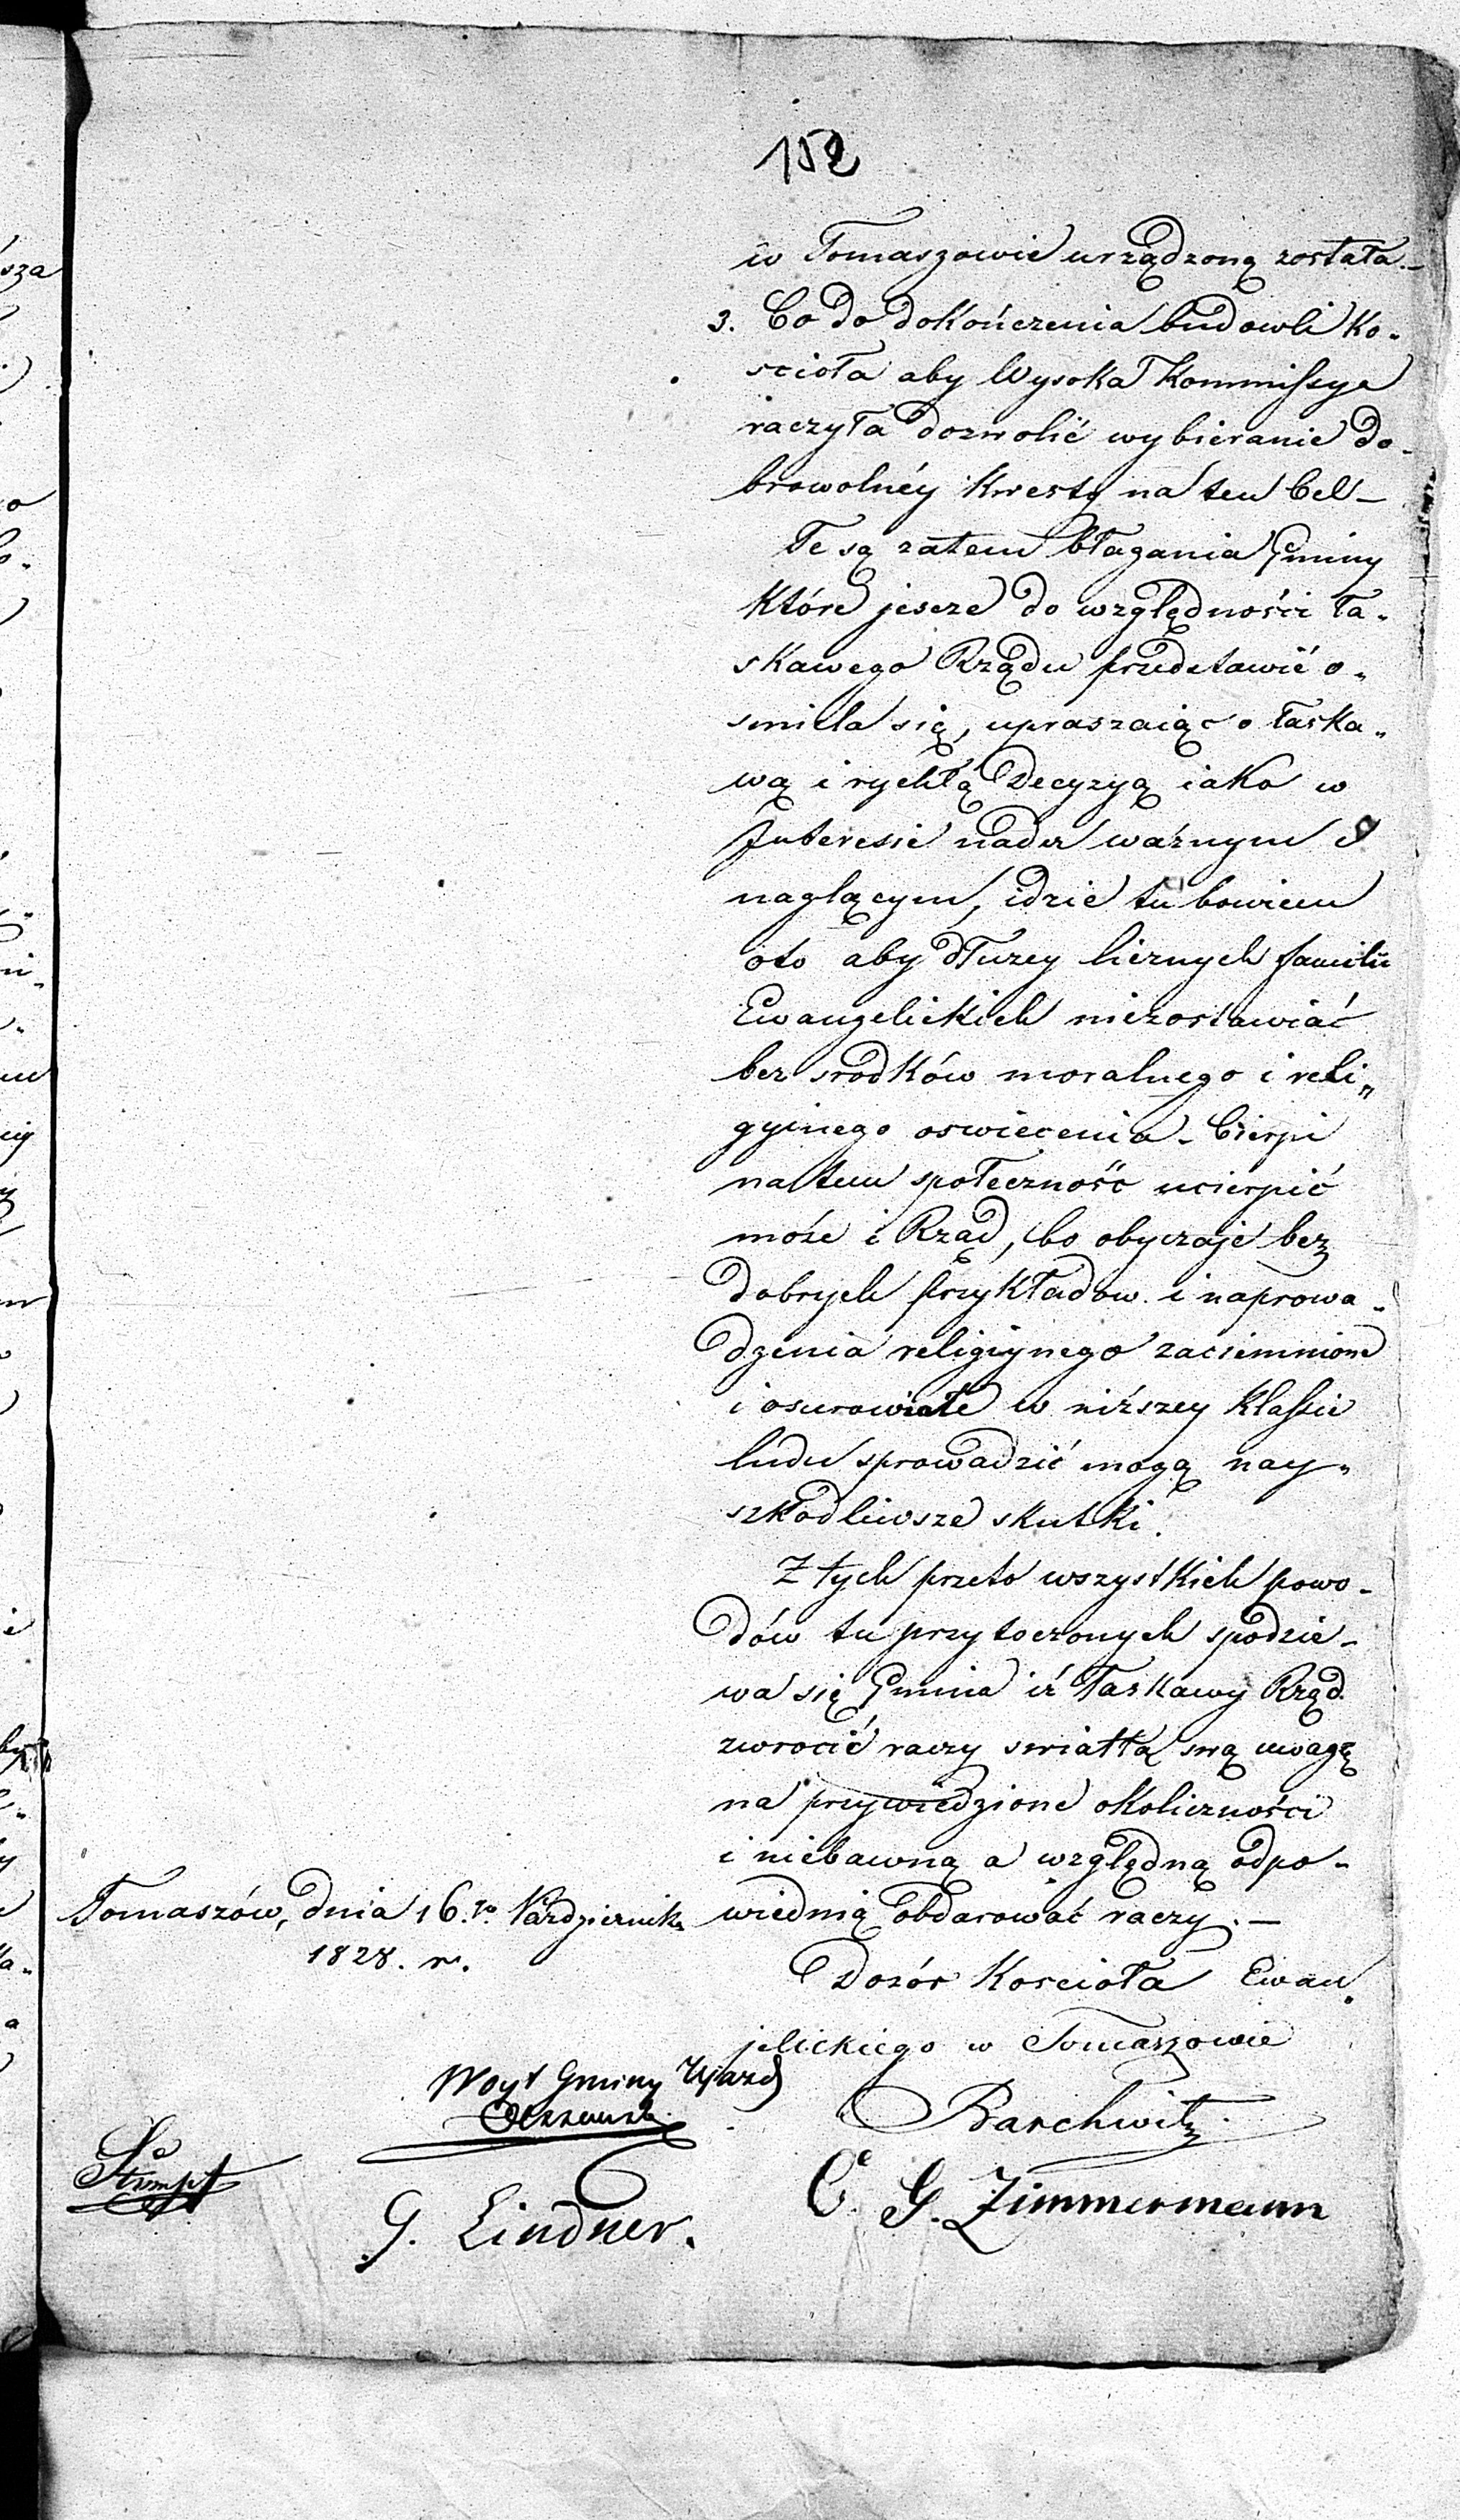 152
w Tomaszowie urządzoną została.—
3. Co do dokończenia budowli Ko„
scioła aby Wysoka Kommissye
raczyła dozwolić wybieranie do„
browolnéy Kwesty na ten Cel—
Te są zatem błagania Gminy
Które jescze do względności ła„
skawego Rządu przedstawić o„
smiela się, upraszaiąc o łaska„
wą i rychłą Decyzyą iako w
Interesie nader ważnym i
naglącym, idzie tu bowiem
oto aby dłużey licznych familii
Ewangelickich niezostawiać
bez srodków moralnego i reli„
gyinego oswiecenia. Cierpi
na tem społeczność ucierpić
może i Rząd, bo obyczaje bez
dobrych przykładow. i naprowa„
dzenia religiynego zaciemnione
i osurowiałe w niższey Klassie
ludu sprowadzić mogą nay„
szkodliwsze skutki.
Z tych przeto wszystkich powo„
dów tu przytoczonych spodzie„
wa się Gmina iż Łaskawy Rząd
zwrocić raczy swiatłą swą uwagę
na przywiedzione okoliczności
i niebawną a względną odpo„
wiednią obdarować raczy.—
Tomaszów, dnia 16.go Pazdziernika
1828. r.
Dozór Kościoła Ewan„
jelickiego w Tomaszowie
Woyt Gminy Ujazd
Barchwitz.
G. Lindner.
C. G. Zimmermann